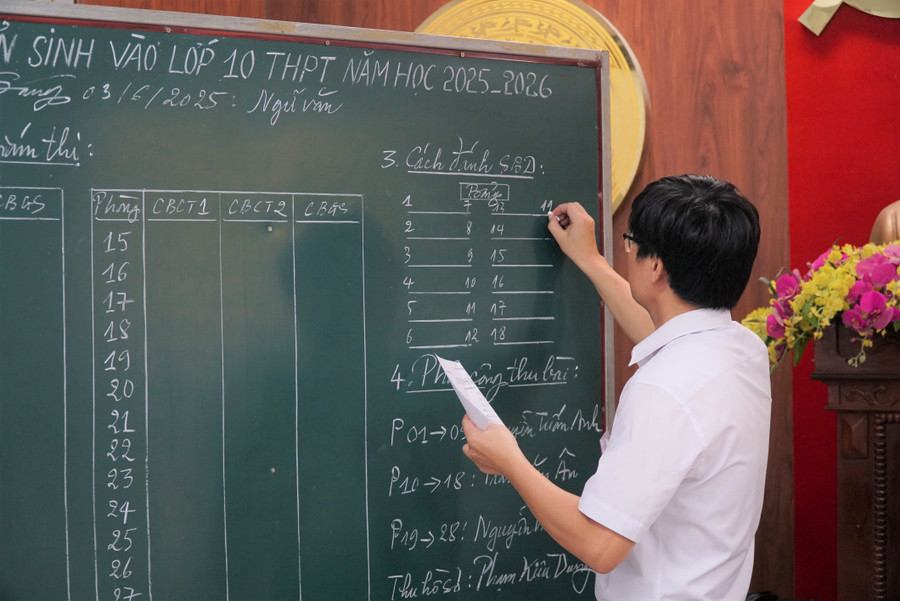 SINH VÀO LỚP 10 THPT NĂM HỌC 2025-2026
Sáng 03/6/2025: Ngữ văn
thị:
CBGS
Phòng CBCT1 CBCT2 CBGS
15
16
17
18
19
20
21
22
23
24
25
26
27
3. Cách đánh SBD:
1 7 19
2 8 14
3 9 15
4 10 16
5 11 17
6 12 18
4. công thu bài:
P01→09 Tuấn Anh
P10→18: Ân
P19→28: Nguyễn
Thu hồ sơ: Phạm Kiều Dung